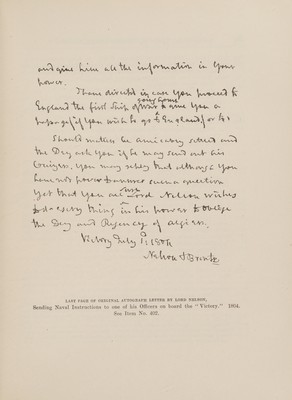 and give him all the information in your
power.
I have directed in case you proceed to
England the first Ship of War going home to give you a
passage if you wish to go to England
Should matters be amicably settled and
the Dey ask you if he may send out his
Cruizers, you may reply that although you
have not power to answer such a question
yet that you are sure Lord Nelson wishes
to do every thing in his power to oblige
the Dey and Regency of Algiers.
Victory July 1804
Nelson & Bronte
LAST PAGE OF ORIGINAL AUTOGRAPH LETTER BY LORD NELSON,
Sending Naval Instructions to one of his Officers on board the "Victory." 1804.
See Item No. 492.